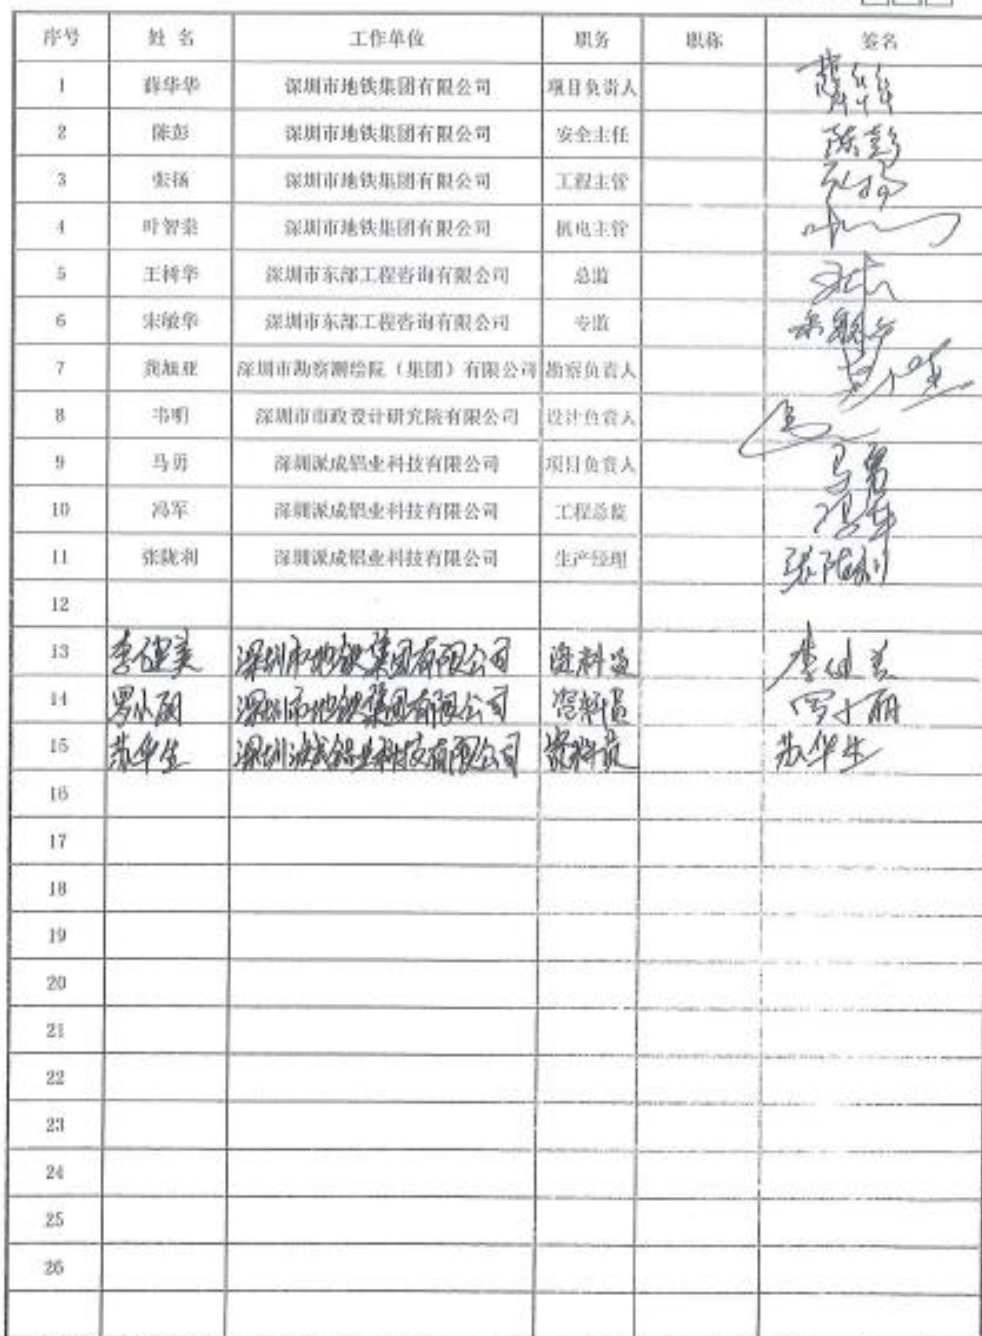 序号 姓名 工作单位 职务 职称 签名
1 薛华华 深圳市地铁集团有限公司 项目负责人
2 陈彭 深圳市地铁集团有限公司 安全主任 陈彭
3 张扬 深圳市地铁集团有限公司 工程主管
4 叶智崇 深圳市地铁集团有限公司 机电主管
5 王树华 深圳市东部工程咨询有限公司 总监
6 宋敏华 深圳市东部工程咨询有限公司 专监
7 龚旭亚 深圳市勘察测绘院（集团）有限公司 勘察负责人
8 韦明 深圳市市政设计研究院有限公司 设计负责人
9 马勇 深圳派成铝业科技有限公司 项目负责人 马勇
10 冯军 深圳派成铝业科技有限公司 工程总监 冯军
11 张陇利 深圳派成铝业科技有限公司 生产经理 张陇利
12
13 李健美 深圳市地铁集团有限公司 资料员
14 罗小丽 深圳市地铁集团有限公司 资料员 罗小丽
15 苏华生 深圳派成铝业科技有限公司 资料员 苏华生
16
17
18
19
20
21
22
23
24
25
26